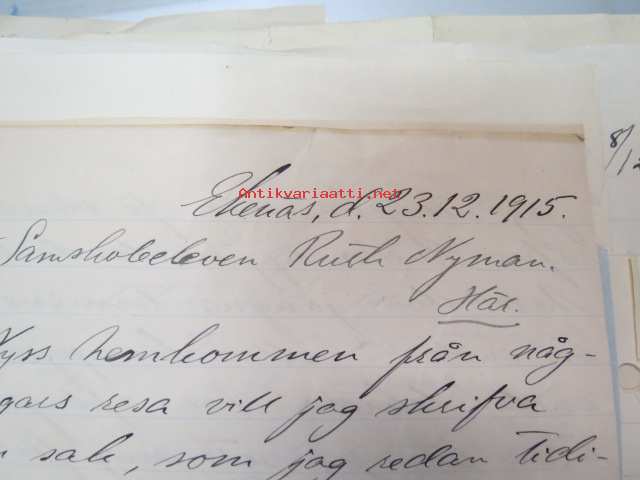 Antikvariaatti.net
Ekenäs, d. 23.12.1915.
Samskoleeleven Ruth Nyman.
Här.
Nyss hemkommen från någ-
gars resa vill jag skrifva
n sak, som jag redan tidi-
8/12